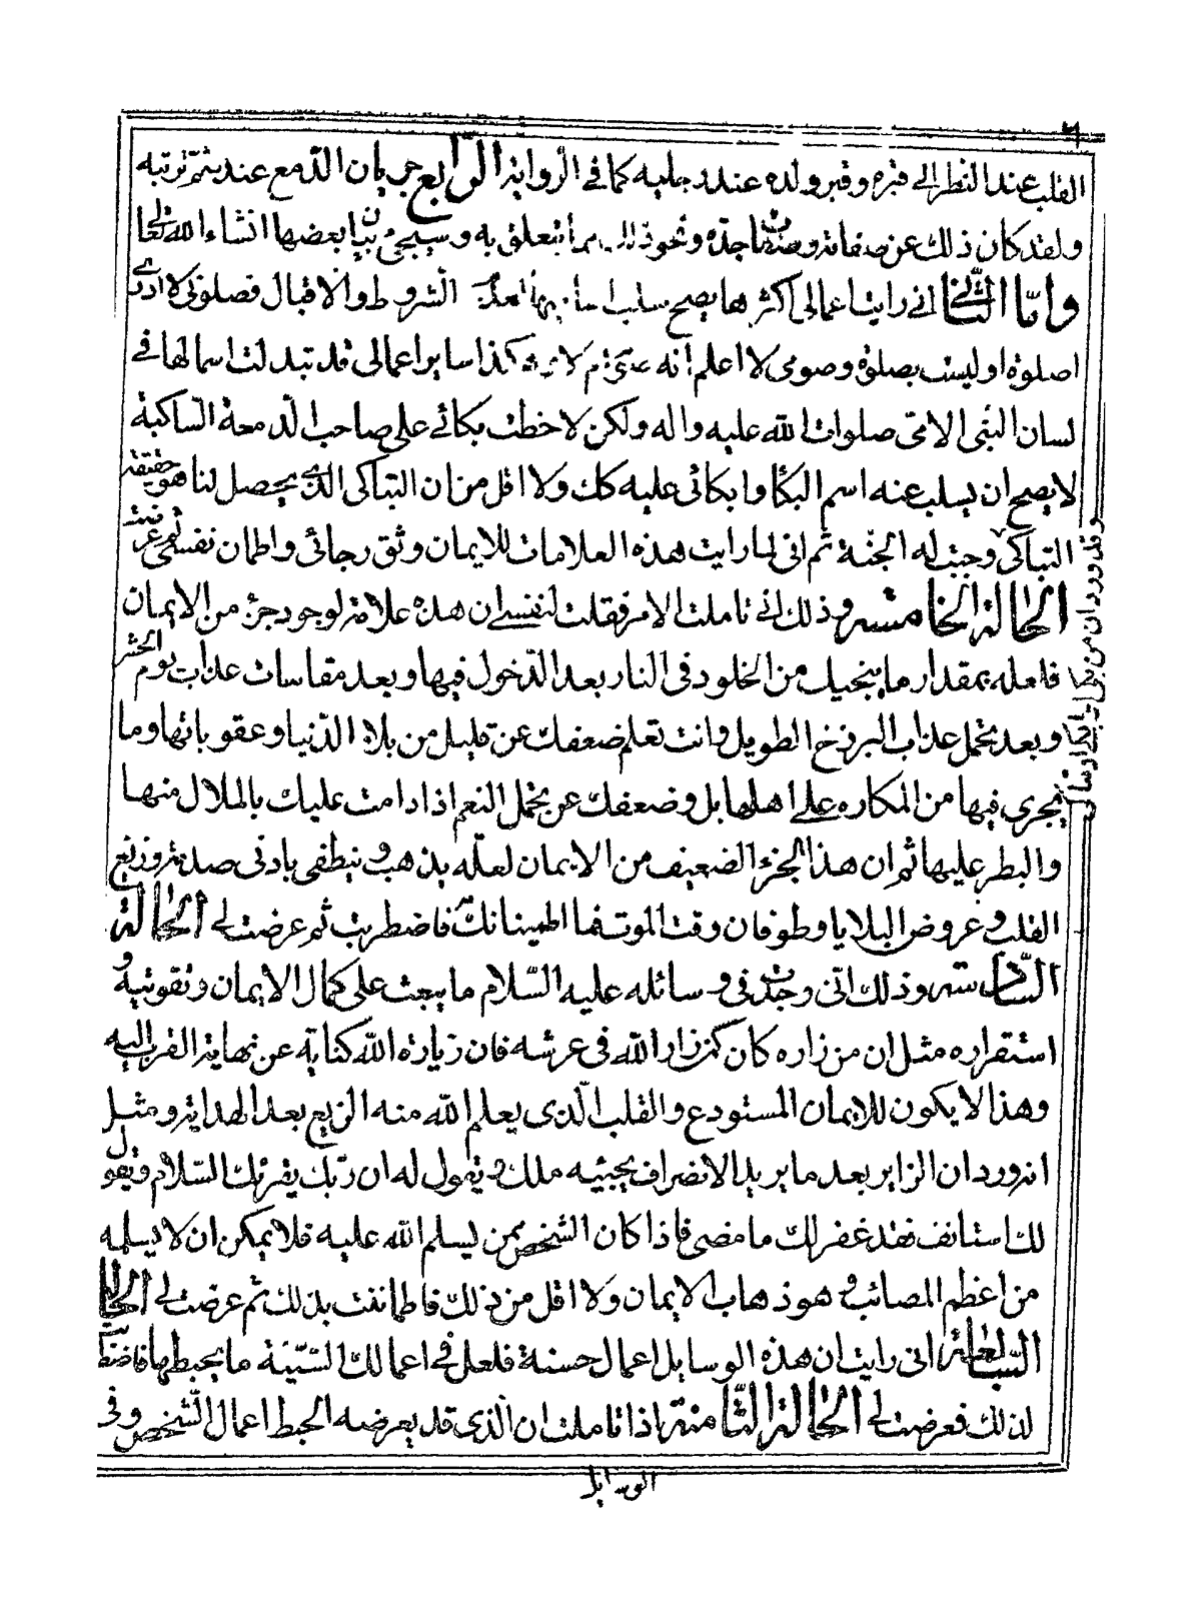 ٦
القلب عند النظر الى قبره وقبر ولده عند رجليه كما فى الرواية الرابع جريان الدمع عند شم تربته
ولقد كان ذلك عن صفاته ومصائب جده ونحو ذلك مما يتعلق به وسيجئ بيان بعضها انشاء الله تعالى
واما الثانى انى رايت اعمالى اكثرها يصح سلب الشروط والاقبال فصلوتى لا ادرى
اصلوة او ليست بصلوة وصومى لا اعلم انه كذا ساير اعمالى قد تبدلت اسمالها فى
لسان النبى الامى صلوات الله عليه واله ولكن لاحظت بكائى على صاحب الدمعة الساكبة
لا يصح ان يسلب عنه اسم البكاء وابكائى عليه كك ولا اقل من ان التباكى الذى يحصل لنا هو حقيقة
التباكى وجبت له الجنة ثم انى لما رايت هذه العلامات للايمان وثق رجائى واطمان نفسى ثم عرضت
الحالة الخامسة وذلك انى تاملت الامر فقلت لنفسى ان هذه علامة لوجود جزء من الايمان
فاعله بمقدار ما ينجيك من الخلود فى النار بعد الدخول فيها وبعد مقاسات عذاب يوم الحشر
وبعد تحمل عذاب البرزخ الطويل وانت تعلم ضعفك عن قليل من بلاء الدنيا وعقوباتها وما
يجرى فيها من المكاره على اهلها بل وضعفك عن تحمل النعم اذا دامت عليك بالملال منها
والبطر عليها ثم ان هذا الجزء الضعيف من الايمان لعله يذهب وينطفى بادنى صدمة وزيغ
القلب وعروض البلايا وطوفان وقت الموت فما اطمينانك فاضطربت ثم عرضت لى الحالة
السادسة وذلك انى وجدت فى وسائله عليه السلام ما يبعث على كمال الايمان وتقويته و
استقراره مثل ان من زاره كان كمن زار الله فى عرشه فان زيارة الله كناية عن نهاية القرب اليه
وهذا لا يكون للايمان المستودع والقلب الذى يعلم الله منه الزيغ بعد الهداية ومثل
انه ورد ان الزاير بعد ما يريد الانصراف يجيئه ملك ويقول له ان ربك يقرئك السلام ويقول
لك استانف فقد غفر لك ما مضى فاذا كان الشخص ممن يسلم الله عليه فلا يمكن ان لا يسلمه
من اعظم المصائب وهو ذهاب الايمان ولا اقل من ذلك فاطماننت بذلك ثم عرضت لى الحالة
السابعة انى رايت ان هذه الوسايل اعمال حسنة فلعل فى اعمالك السيئة ما يحبطها فاضطربت
لذلك فعرضت لى الحالة الثامنة اذا تاملت ان الذى قد يعرضه الحبط اعمال الشخص وفى
الوسايل
وقد ورد ان من